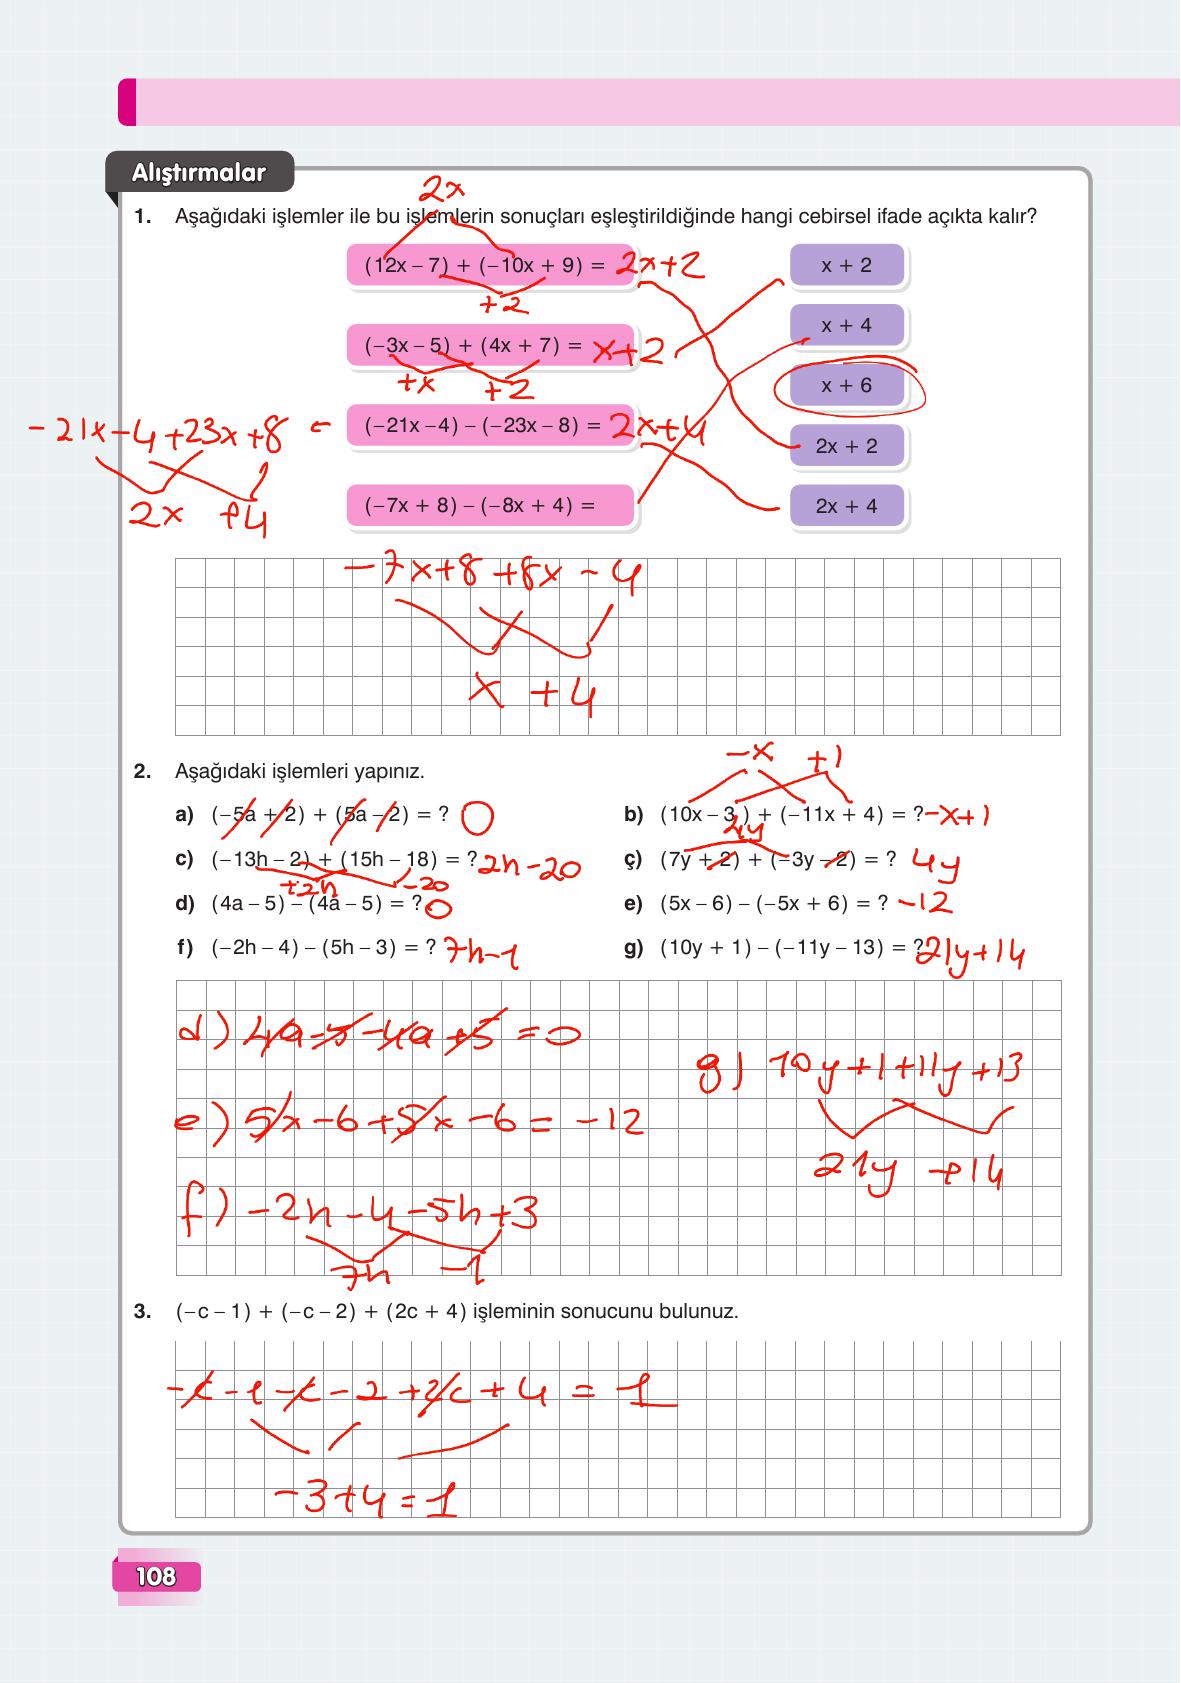 Alıştırmalar
2x
1. Aşağıdaki işlemler ile bu işlemlerin sonuçları eşleştirildiğinde hangi cebirsel ifade açıkta kalır?
(12x – 7) + (–10x + 9) = 2x+2
x + 2
+2
x + 4
(–3x – 5) + (4x + 7) = x+2
+x +2
x + 6
-21x-4+23x+8 =
(–21x –4) – (–23x – 8) = 2x+4
2x + 2
2x +4
(–7x + 8) – (–8x + 4) =
2x + 4
-7x+8 +8x -4
x +4
2. Aşağıdaki işlemleri yapınız.
-x +1
a) (–5a + 2) + (5a – 2) = ? 0
b) (10x – 3 ) + (–11x + 4) = ? -x+1
4y
c) (–13h – 2) + (15h – 18) = ? 2h-20
ç) (7y + 2) + (–3y – 2) = ? 4y
+2h -20
d) (4a – 5) – (4a – 5) = ? 0
e) (5x – 6) – (–5x + 6) = ? -12
f) (–2h – 4) – (5h – 3) = ? 7h-1
g) (10y + 1) – (–11y – 13) = ? 21y+14
d) 4a-5-4a+5 =0
g) 10y+1+11y+13
e) 5x-6+5x-6= -12
21y +14
f) -2h-4-5h+3
7h -1
3. (–c – 1) + (–c – 2) + (2c + 4) işleminin sonucunu bulunuz.
-c-1-c-2+2c+4 = 1
-3+4=1
108